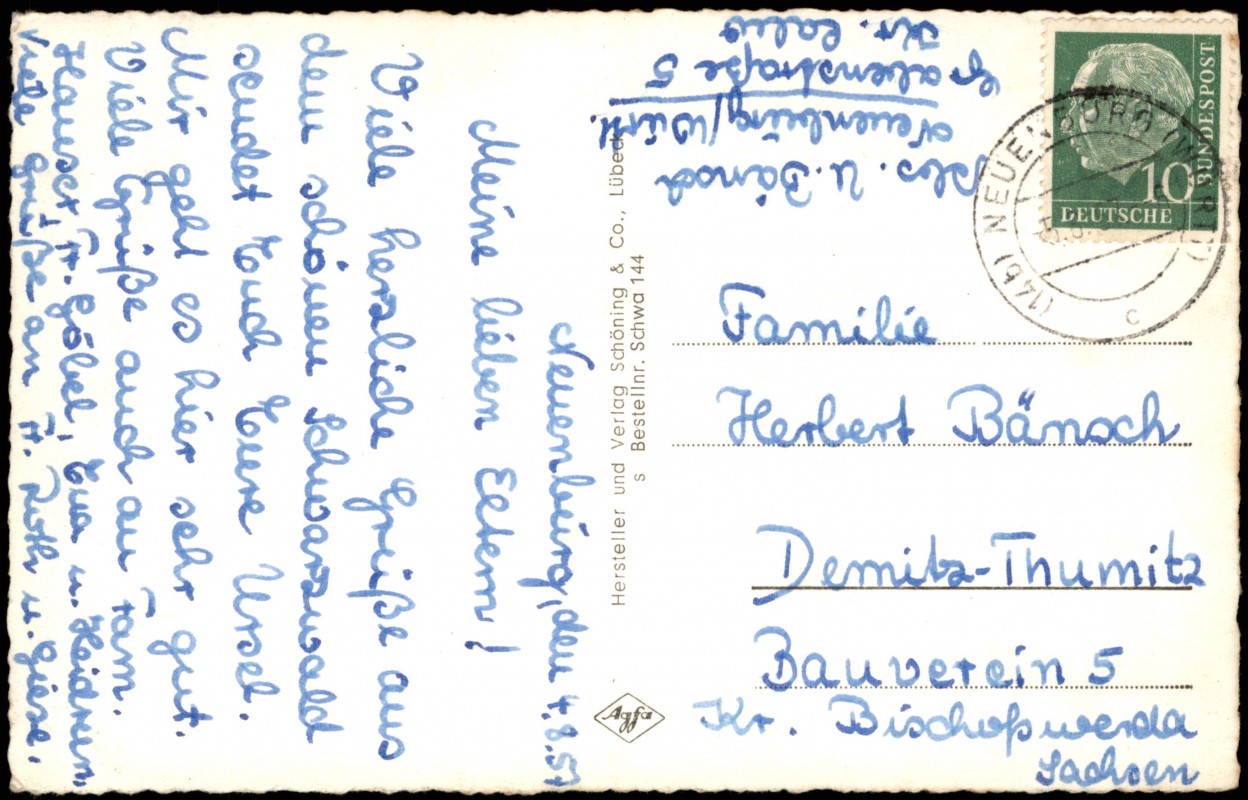 Neuenbürg, den 4.8.57
Meine lieben Eltern!
Viele herzliche Grüße aus
dem schönen Schwarzwald
sendet Euch Eure Ursel.
Mir geht es hier sehr gut.
Viele Grüße auch an Fam.
Hauser, Fr. Göbel, Eva u. Heidrun,
viele Grüße an Fr. Roth u. Giese.
Hersteller und Verlag Schöning & Co., Lübeck
s Bestellnr. Schwa 144
Agfa
Abs. U. Bänsch
Neuenbürg/Württ.
Grabenstraße 5
Kr. Calw
BUNDESPOST
10
DEUTSCHE
(14b) NEUENBÜRG (WÜRTT)
c
Familie
Herbert Bänsch
Demitz-Thumitz
Bauverein 5
Kr. Bischofswerda
Sachsen